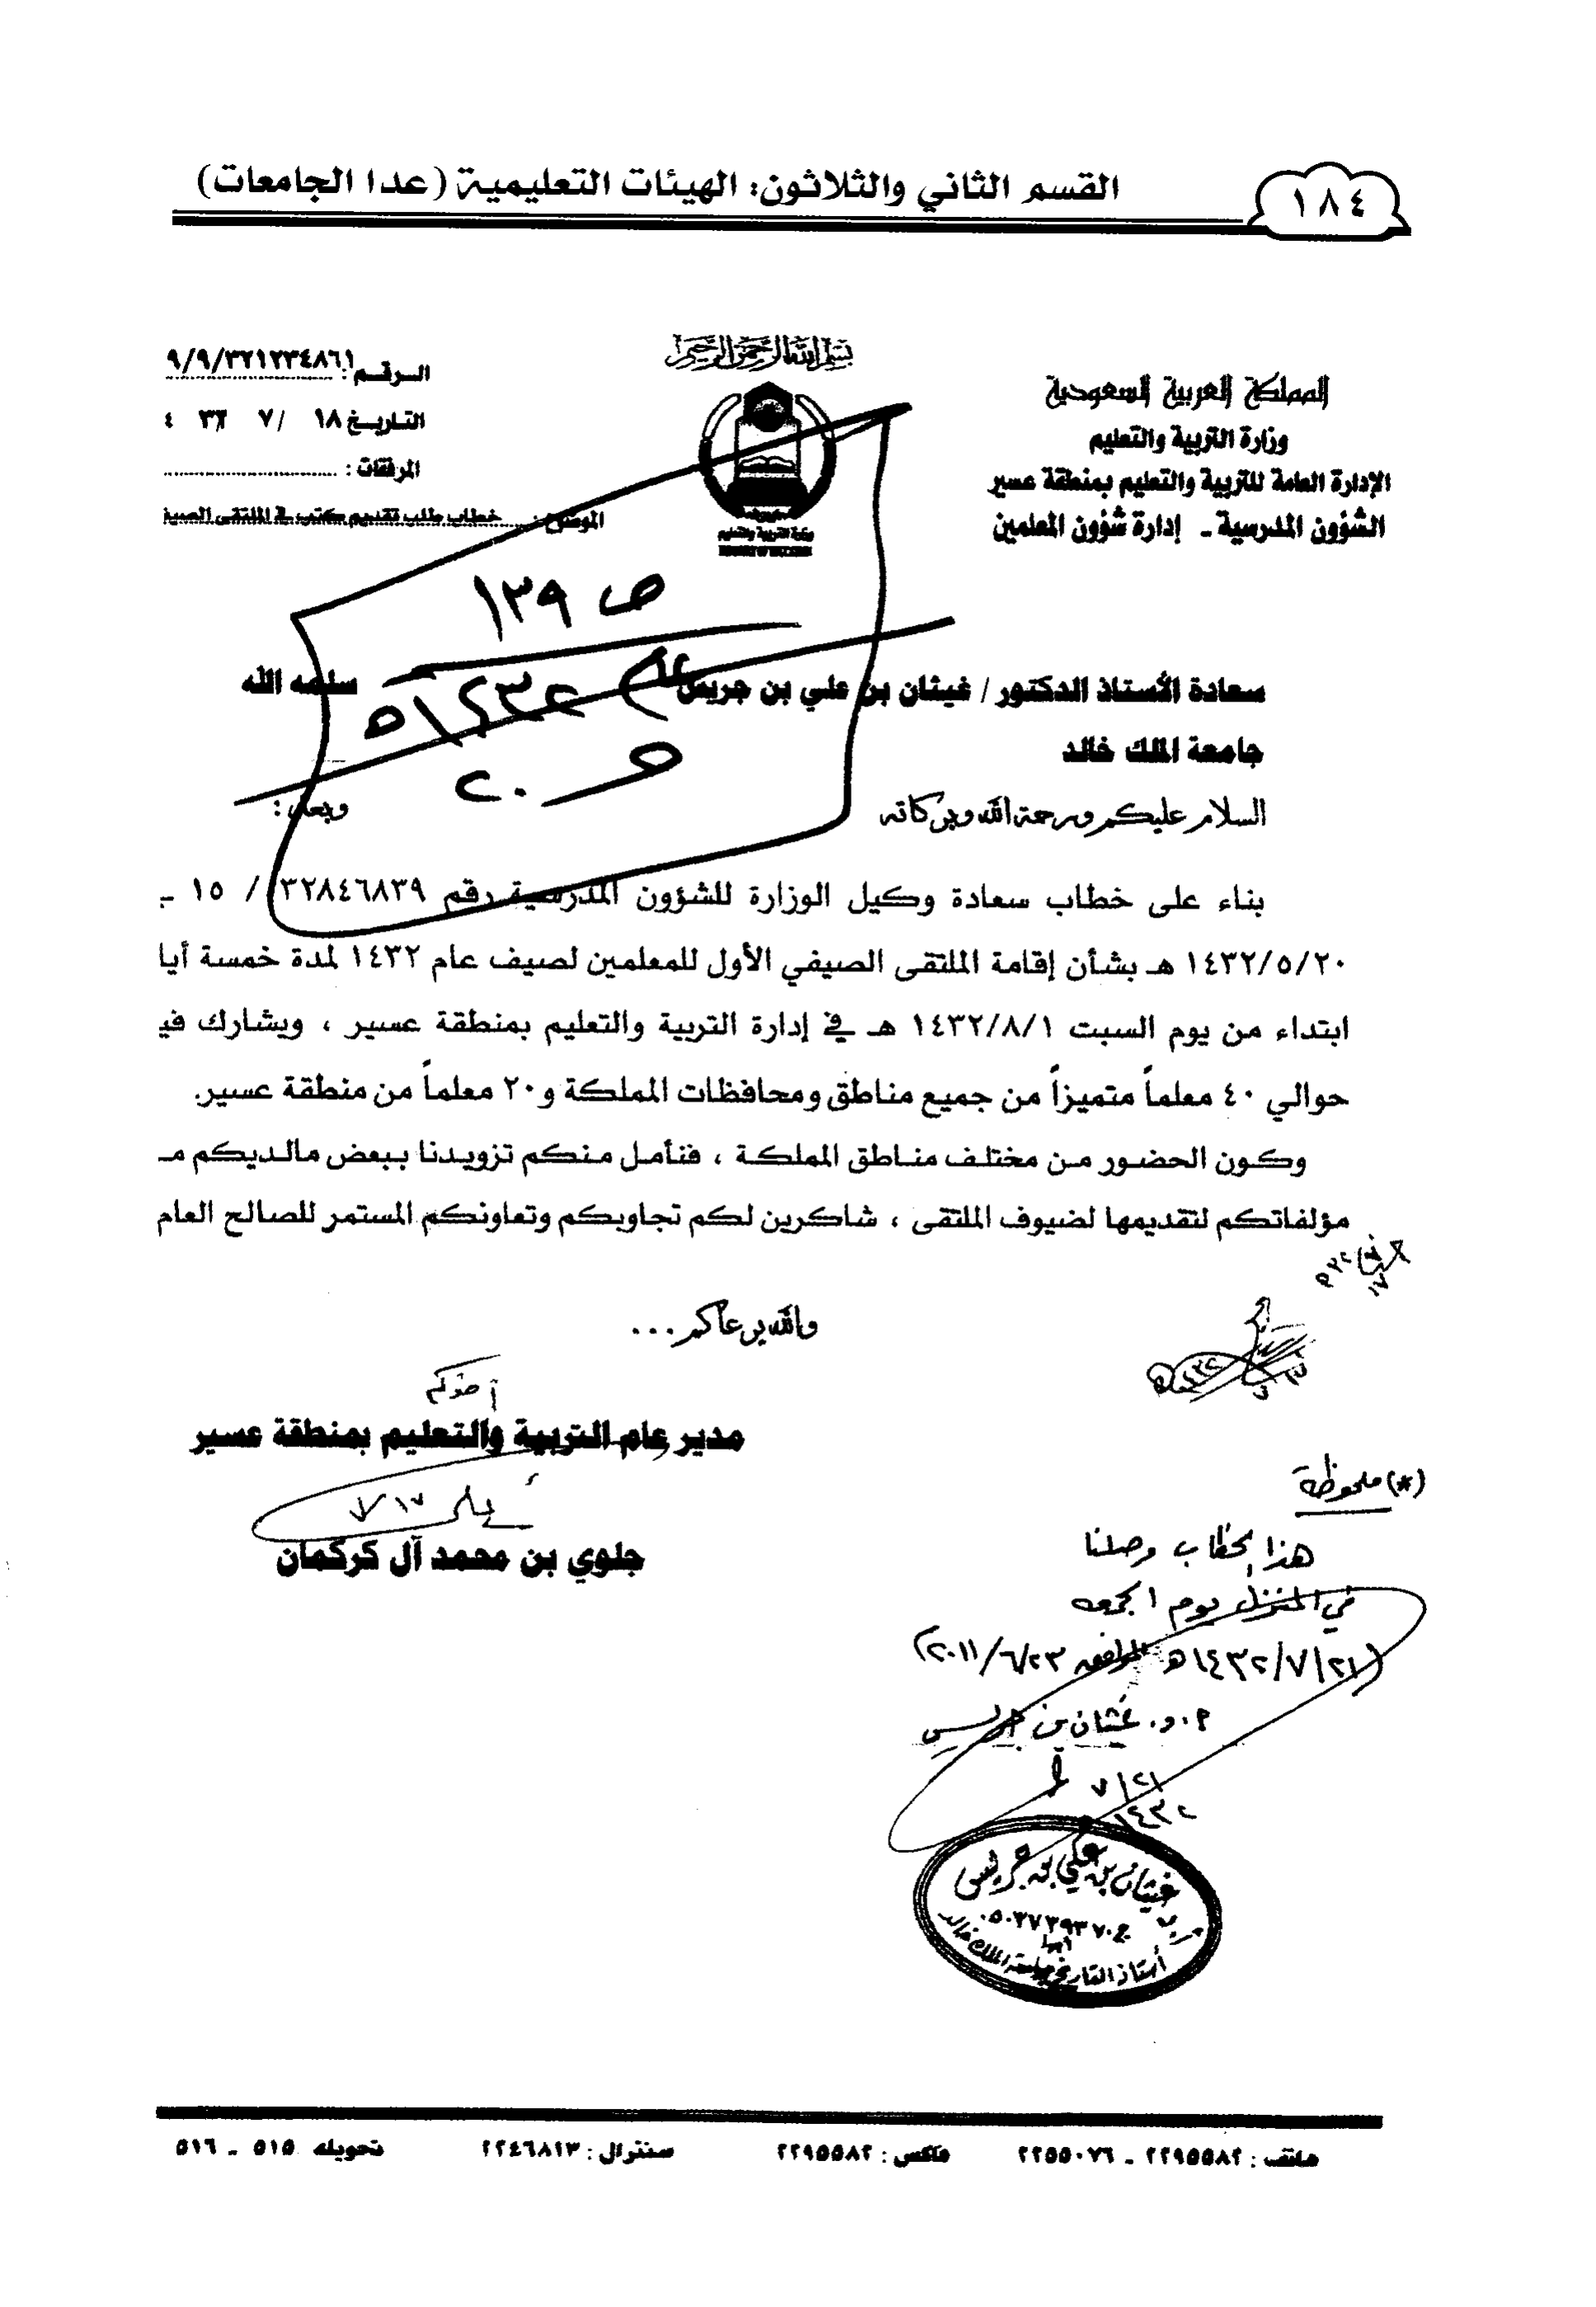 ١٨٤
القسم الثاني والثلاثون: الهيئات التعليمية (عدا الجامعات)
بسم الله الرحمن الرحيم
المملكة العربية السعودية
وزارة التربية والتعليم
الإدارة العامة للتربية والتعليم بمنطقة عسير
الشؤون المدرسية - إدارة شؤون المعلمين
الرقم: ٩/٩/٣٢١٢٣٤٨٦١
التاريخ ١٨ /٧
المرفقات:
الموضوع: خطاب طلب تقديم كتب في الملتقى الصيفـ
وزارة التربية والتعليم
ص ١٣٩
سعادة الأستاذ الدكتور / غيثان بن علي بن جريس سلمه الله
جامعة الملك خالد
السلام عليكم ورحمة الله وبركاته وبعد:
بناء على خطاب سعادة وكيل الوزارة للشؤون المدرسية رقم ٣٢٨٤٦٨٣٩/ ١٥ -
١٤٣٢/٥/٢٠ هـ بشأن إقامة الملتقى الصيفي الأول للمعلمين لصيف عام ١٤٣٢ لمدة خمسة أيا
ابتداء من يوم السبت ١٤٣٢/٨/١ هـ في إدارة التربية والتعليم بمنطقة عسير ، ويشارك فيـ
حوالي ٤٠ معلماً متميزاً من جميع مناطق ومحافظات المملكة و٢٠ معلماً من منطقة عسير.
وكون الحضور من مختلف مناطق المملكة ، فنأمل منكم تزويدنا ببعض مالديكم مـ
مؤلفاتكم لتقديمها لضيوف الملتقى ، شاكرين لكم تجاوبكم وتعاونكم المستمر للصالح العام
والله يرعاكم...
أخوكم
مدير عام التربية والتعليم بمنطقة عسير
جلوي بن محمد آل كركمان
(*) ملحوظة
هذا الخطاب وصلنا
في المنزل يوم الجمعه
(١٤٣٢/٧/٢١هـ الموافق ٢٠١١/٦/٢٣)
أ.د. غيثان بن جريس
٧/٢١
١٤٣٢
غيثان بن علي بن جريس
أبها
أستاذ التاريخ بجامعة الملك خالد
هاتف: ٢٢٩٥٥٨٢ - ٢٢٥٥٠٧٦ فاكس: ٢٢٩٥٥٨٢ سنترال: ٢٢٤٦٨١٣ تحويله ٥١٥ - ٥١٦